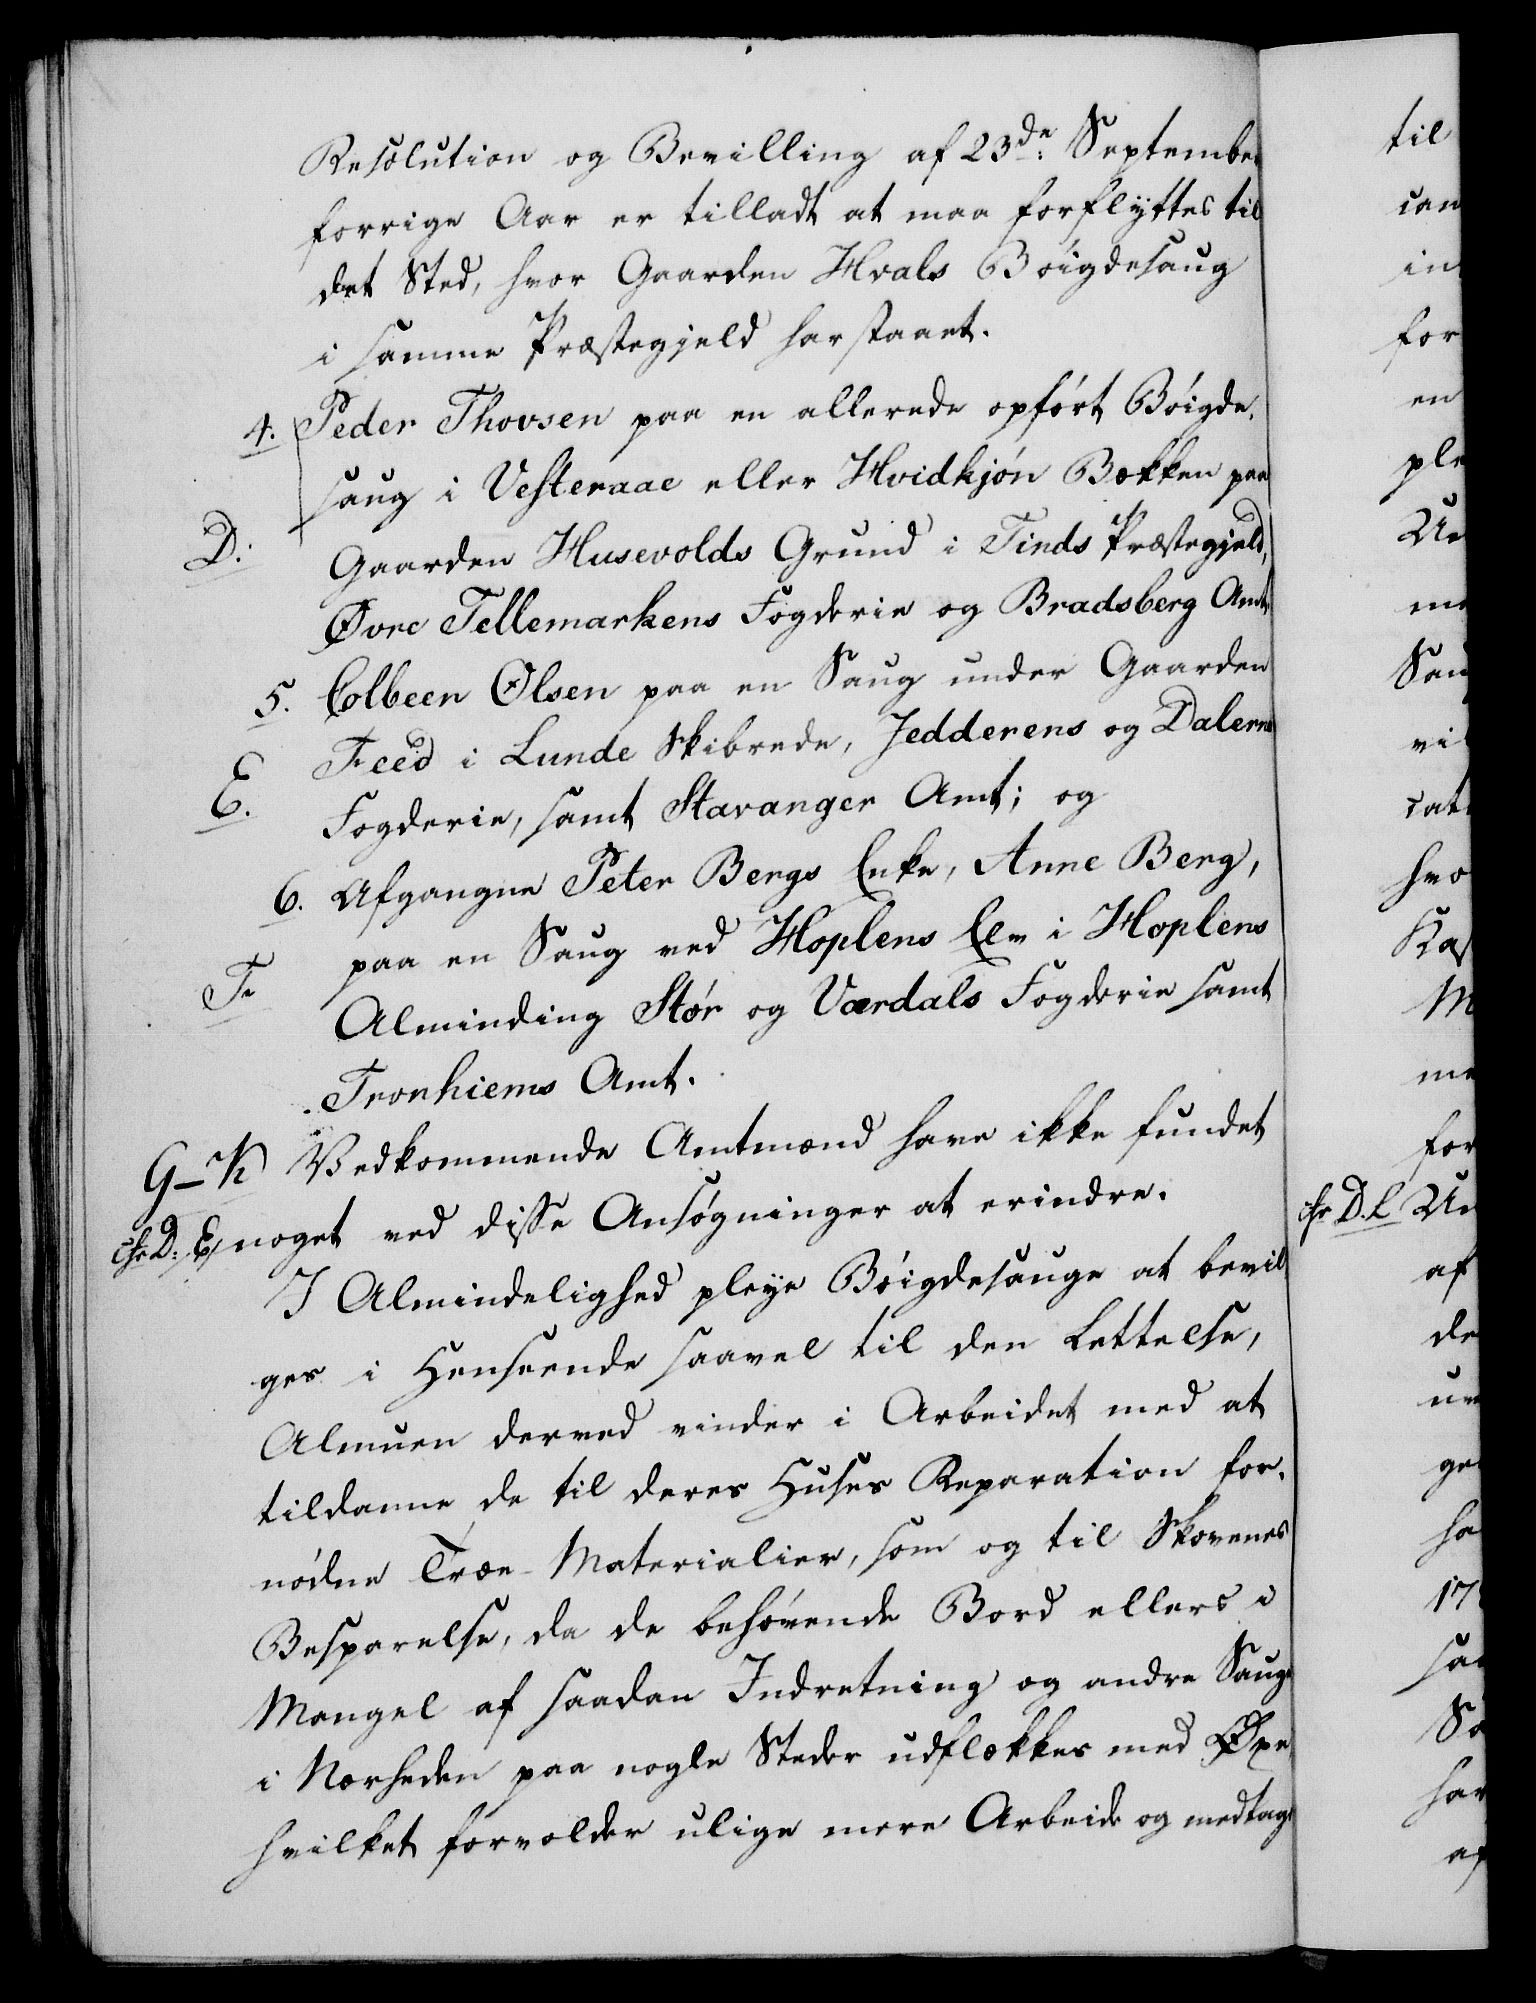 Resolution og Bevilling af 23de: September
forrige Aar er tilladt at maa forflyttes til
det Sted, hvor Gaarden Hvals Bøigdesaug
i samme Præstegjeld har staaet.
4. Peder Thovsen paa en allerede opført Bøigde-
saug i Vesteraae eller Hvidkjøn Bækken paa
D: Gaarden Husevolds Grund i Tinds Præstegjeld,
Øvre Tellemarkens Fogderie og Bradsberg Amt
5. Colbeen Olsen paa en Saug under Gaarden
E. Feed i Lunde Skibrede, Jedderens og Dalerne
Fogderie, samt Stavanger Amt; og
6. Afgangne Peter Bergs Enke, Anne Berg,
F. paa en Saug ved Hoplens Elv i Hoplens
Alminding Stør og Værdals Fogderie samt
Tronhiems Amt.
G-K Vedkommende Amtmænd have ikke fundet
cfr D: E, noget ved disse Ansøgninger at erindre.
I Almindelighed pleye Bøigdesauge at bevil
ges i Henseende saavel til den Lettelse,
Almuen derved vinder i Arbeidet med at
tildanne de til deres Huses Reparation for-
nødne Træe-Materialier, som og til Skovenes
Besparelse, da de behøvende Bord ellers i
Mangel af saadan Indretning og andre Sauge
i Nærheden paa nogle Steder udflækkes med Øxe
hvilket forvolder ulige mere Arbeide og medtage
til
can
in
for
en
ple
me
Sau
vi
cat
hvo
Kas
M
me
for
cfr D. L
af
de
ge
ha
17
saa
Sa
har
af